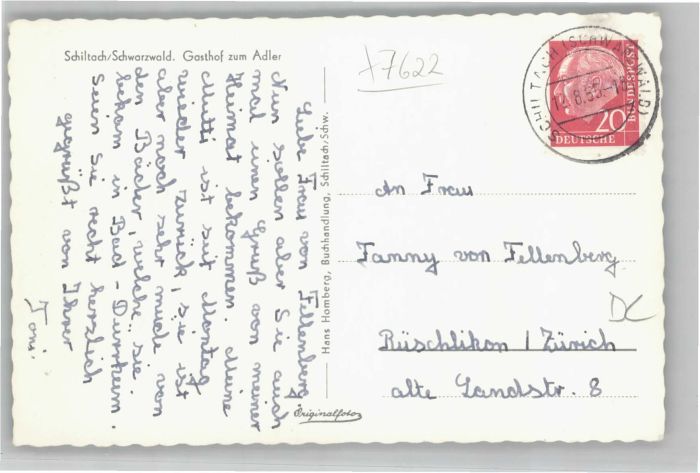 Schiltach/Schwarzwald. Gasthof zum Adler
+7622
SCHILTACH (SCHWARZWALD)
12.8.55.-18
20
DEUTSCHE
BUNDESPOST
Liebe Frau von Fellenberg
Nun sollen aber Sie auch
mal einen Gruß von meiner
Heimat bekommen. Meine
Mutti ist seit Montag
wieder zurück, sie ist
aber noch sehr müde von
den Bäder, welche sie
bekam in Bad-Dürrheim.
Seien Sie recht herzlich
gegrüßt von Ihrer
Toni.
Hans Homberg, Buchhandlung, Schiltach/Schw.
Originalfoto
An Frau
Fanny von Fellenberg
DC
Rüschlikon / Zürich
alte Landstr. 8